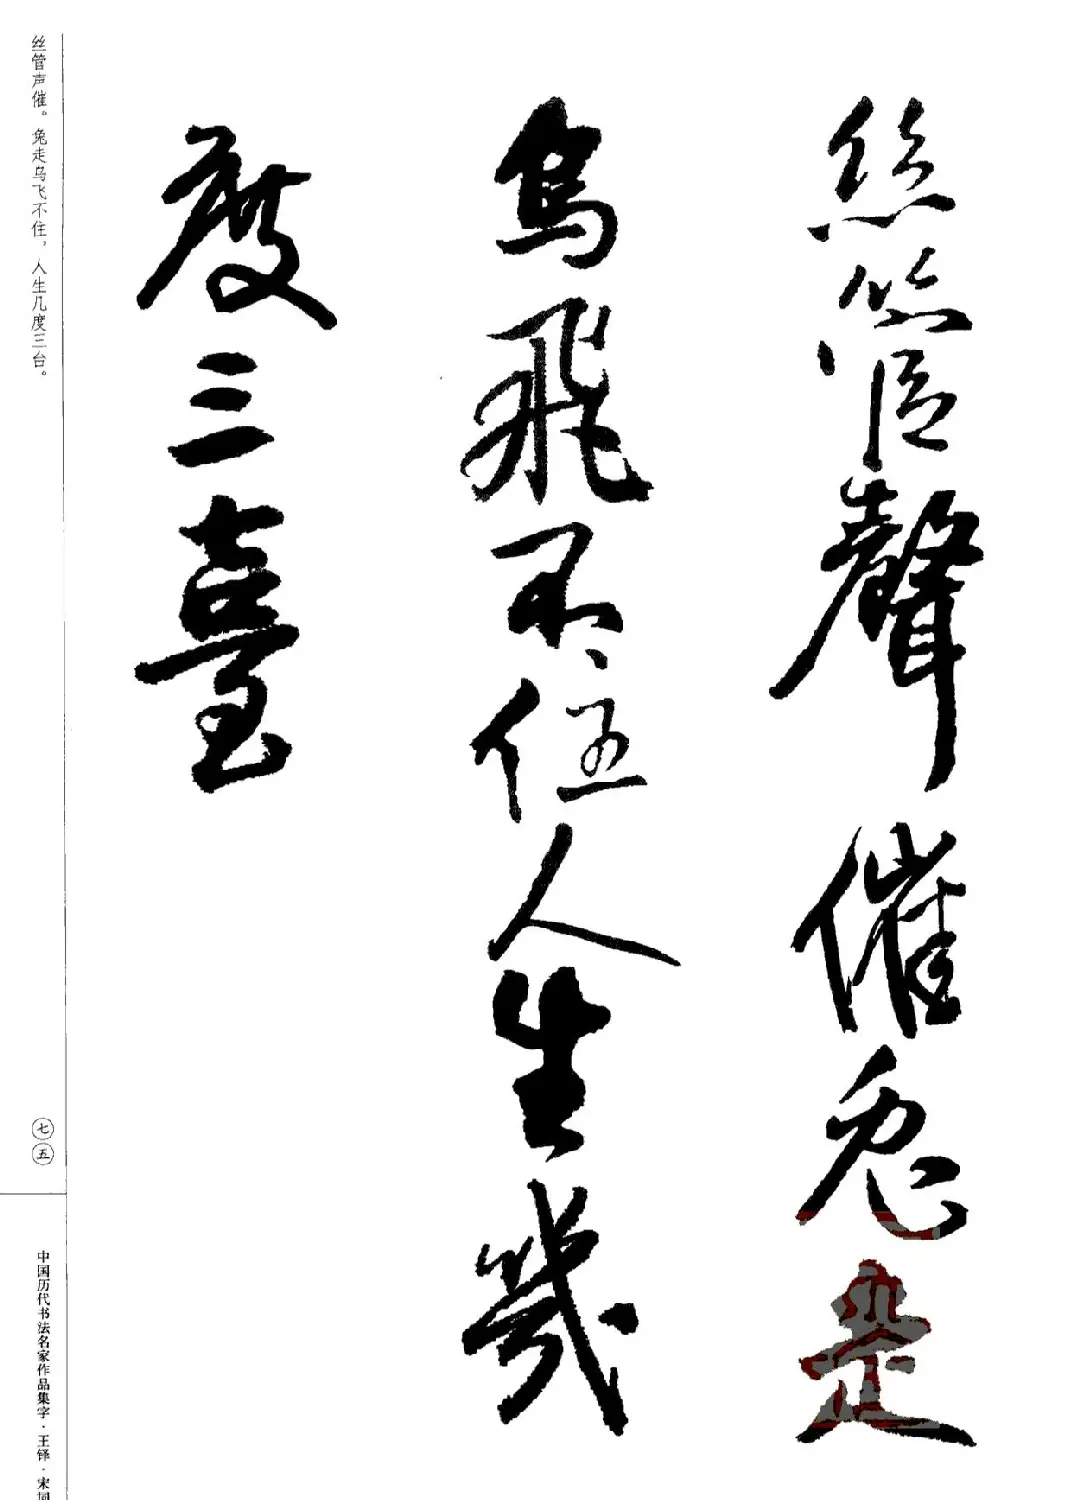 絲管聲催兔走
烏飛不住人生幾
度三臺
丝管声催。兔走乌飞不住，人生几度三台。
七五
中国历代书法名家作品集字·王铎·宋词